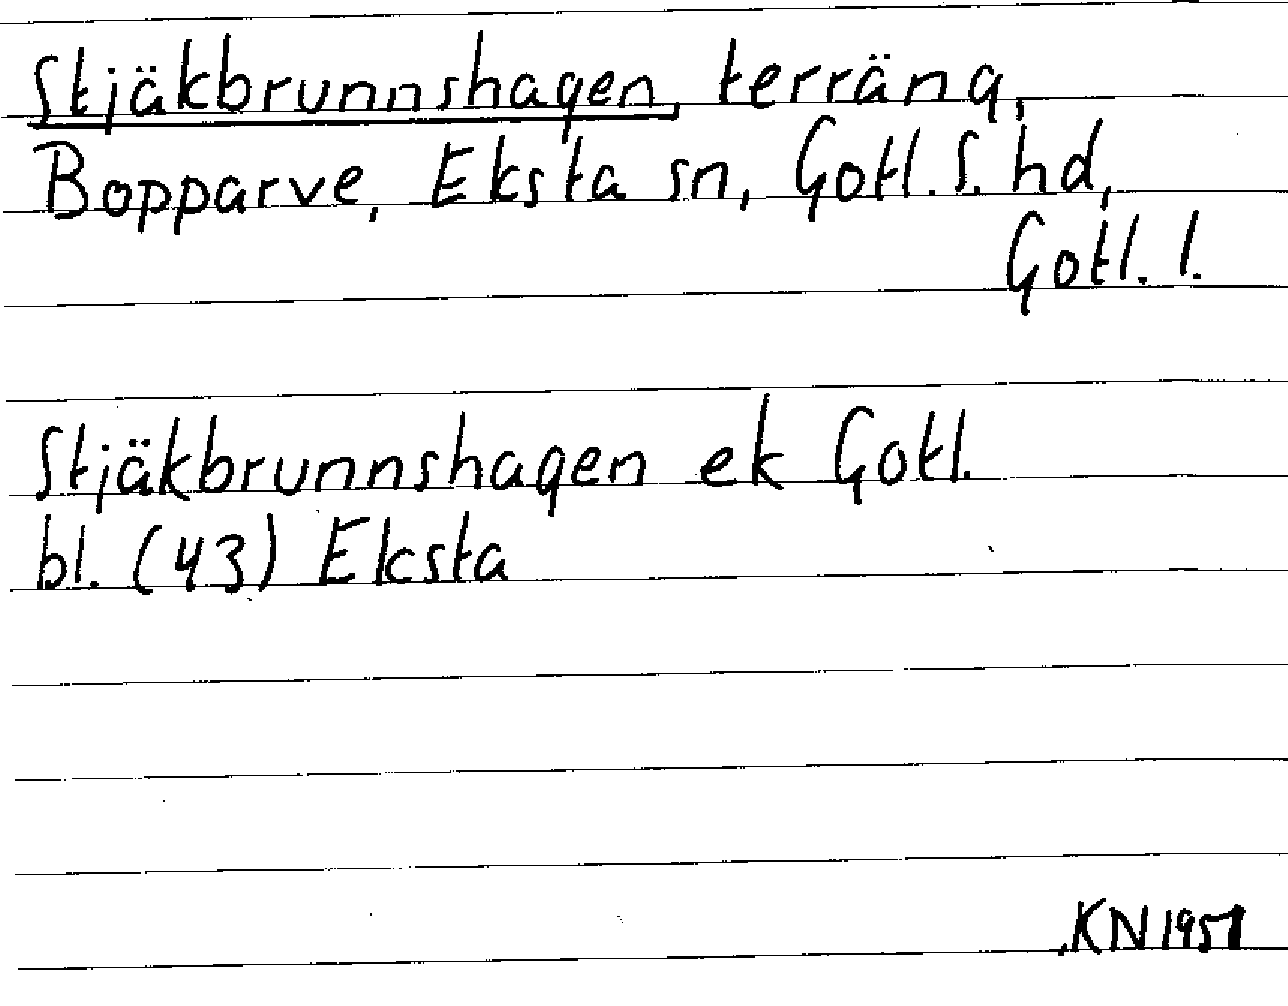 Stjäkbrunnshagen, terräng,
Bopparve, Eksta sn, Gotl. S. hd,
Gotl. l.
Stjäkbrunnshagen ek Gotl.
bl. (43) Eksta
KN 1951